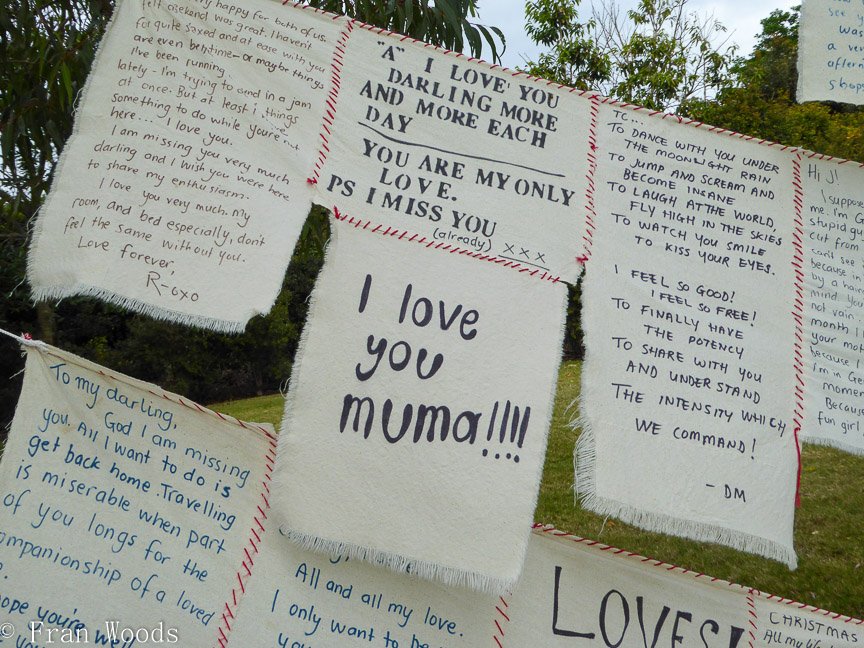 very happy for both of us.
felt weekend was great. I haven't
for quite
saxed and at ease with you
are even bedtime - or maybe things
I've been running
lately - i'm trying to send in a jam
at once. But at least i things
something to do while you're not
here... I love you.
I am missing you very much
darling and I wish you were here
to share my enthusiasm.
I love you very much. My
room, and bed especially, don't
feel the same without you.
Love forever,
R-oxo
"A" I LOVE YOU
DARLING MORE
AND MORE EACH
DAY
YOU ARE MY ONLY
LOVE.
PS I MISS YOU
(already) xxx
TC...
TO DANCE WITH YOU UNDER
THE MOONLIGHT RAIN
TO JUMP AND SCREAM AND
BECOME INSANE
TO LAUGH AT THE WORLD,
FLY HIGH IN THE SKIES
TO WATCH YOU SMILE
TO KISS YOUR EYES.
I FEEL SO GOOD!
I FEEL SO FREE!
TO FINALLY HAVE
THE POTENCY
TO SHARE WITH YOU
AND UNDERSTAND
THE INTENSITY WHICH
WE COMMAND!
- DM
Hi J!
I suppose
me. i'm G
stupid guy
cut from
can't see
because
by a hair
mind you
not vain,
month I
your mot
because I
i'm in Ge
momen
Because
fun girl
was
a ve
aftern
shops
I love
you
muma!!!!
To my darling,
God I am missing
you. All I want to do is
get back home. Travelling
is miserable when part
of you longs for the
ompanionship of a loved
e.
hope you're well
All and all my love.
I only want to be
LOVES!
CHRISTMAS
All my
© Fran Woods